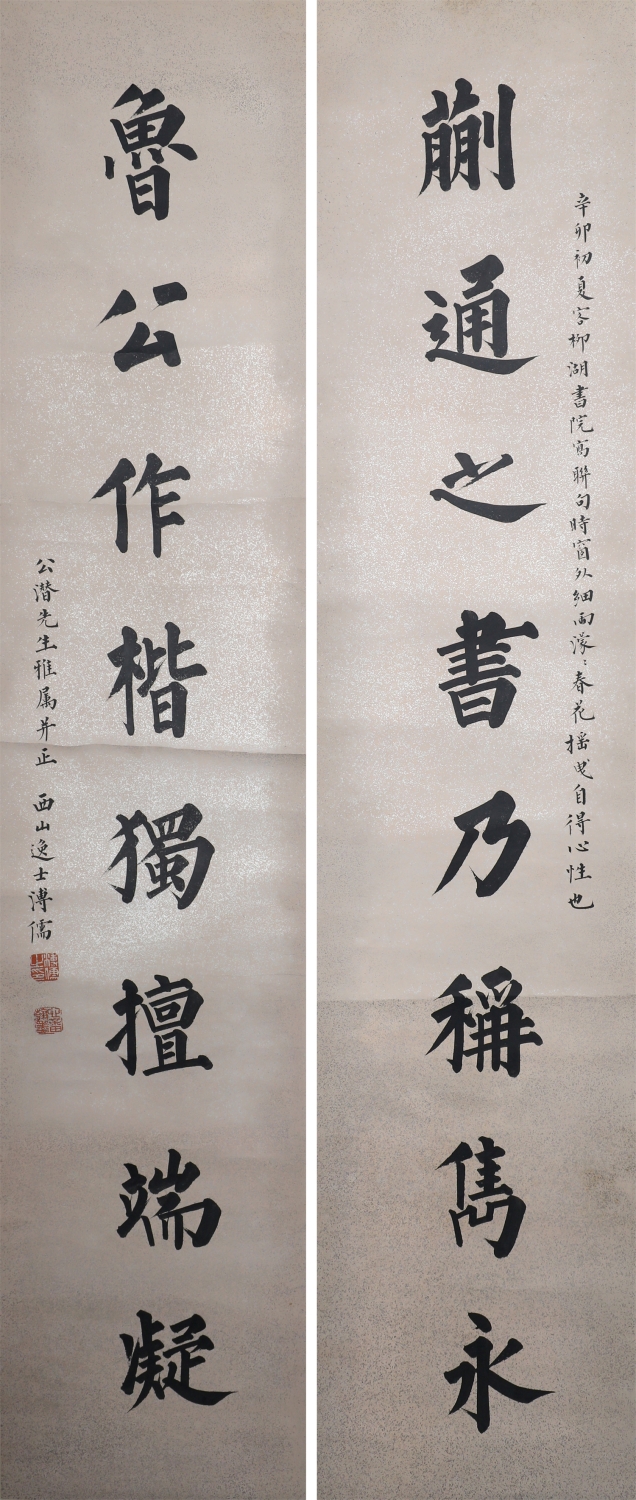 辛卯初夏客柳湖書院寫聯句時窗外細雨濛〻春花摇曳自得心性也
蒯通之書乃稱雋永
魯公作楷獨擅端凝
公潛先生雅属并正 西山逸士溥儒